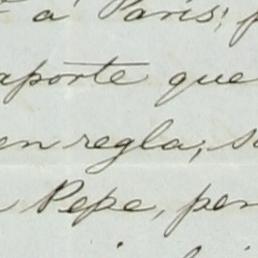 á Paris; p
aporte que
en regla; s
Pepe, per